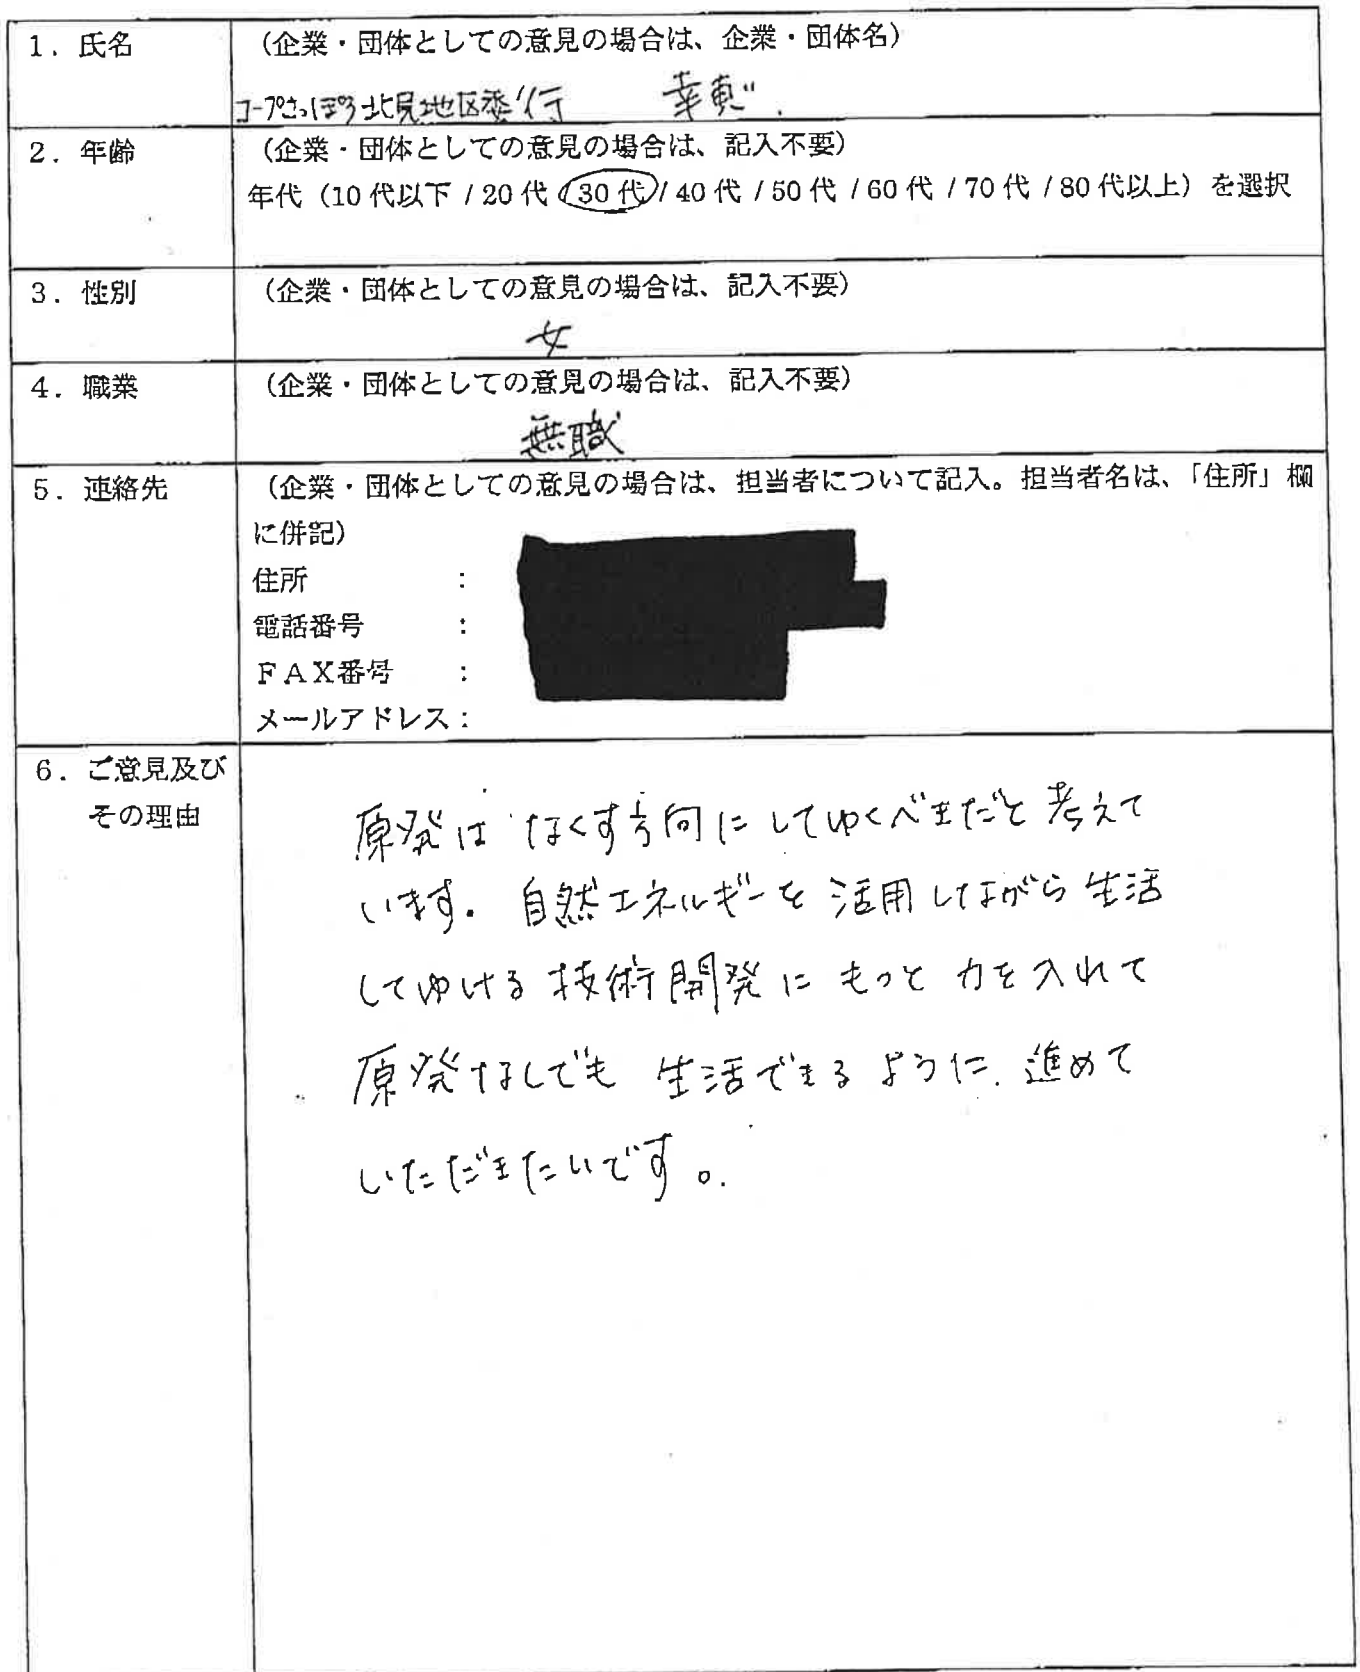 1．氏名
（企業・団体としての意見の場合は、企業・団体名）
コープさっぽろ北見地区委行
2．年齢
（企業・団体としての意見の場合は、記入不要）
年代（10代以下 / 20代 / 30代 / 40代 / 50代 / 60代 / 70代 / 80代以上）を選択
3．性別
（企業・団体としての意見の場合は、記入不要）
女
4．職業
（企業・団体としての意見の場合は、記入不要）
無職
5．連絡先
（企業・団体としての意見の場合は、担当者について記入。担当者名は、「住所」欄
に併記）
住所 ：
電話番号 ：
ＦＡＸ番号 ：
メールアドレス：
6．ご意見及び
その理由
原発は なくす方向に してゆくべきだと 考えて
います。 自然エネルギーを 活用しながら 生活
してゆける 技術開発に もっと 力を入れて
原発なしでも 生活できるように 進めて
いただきたいです。